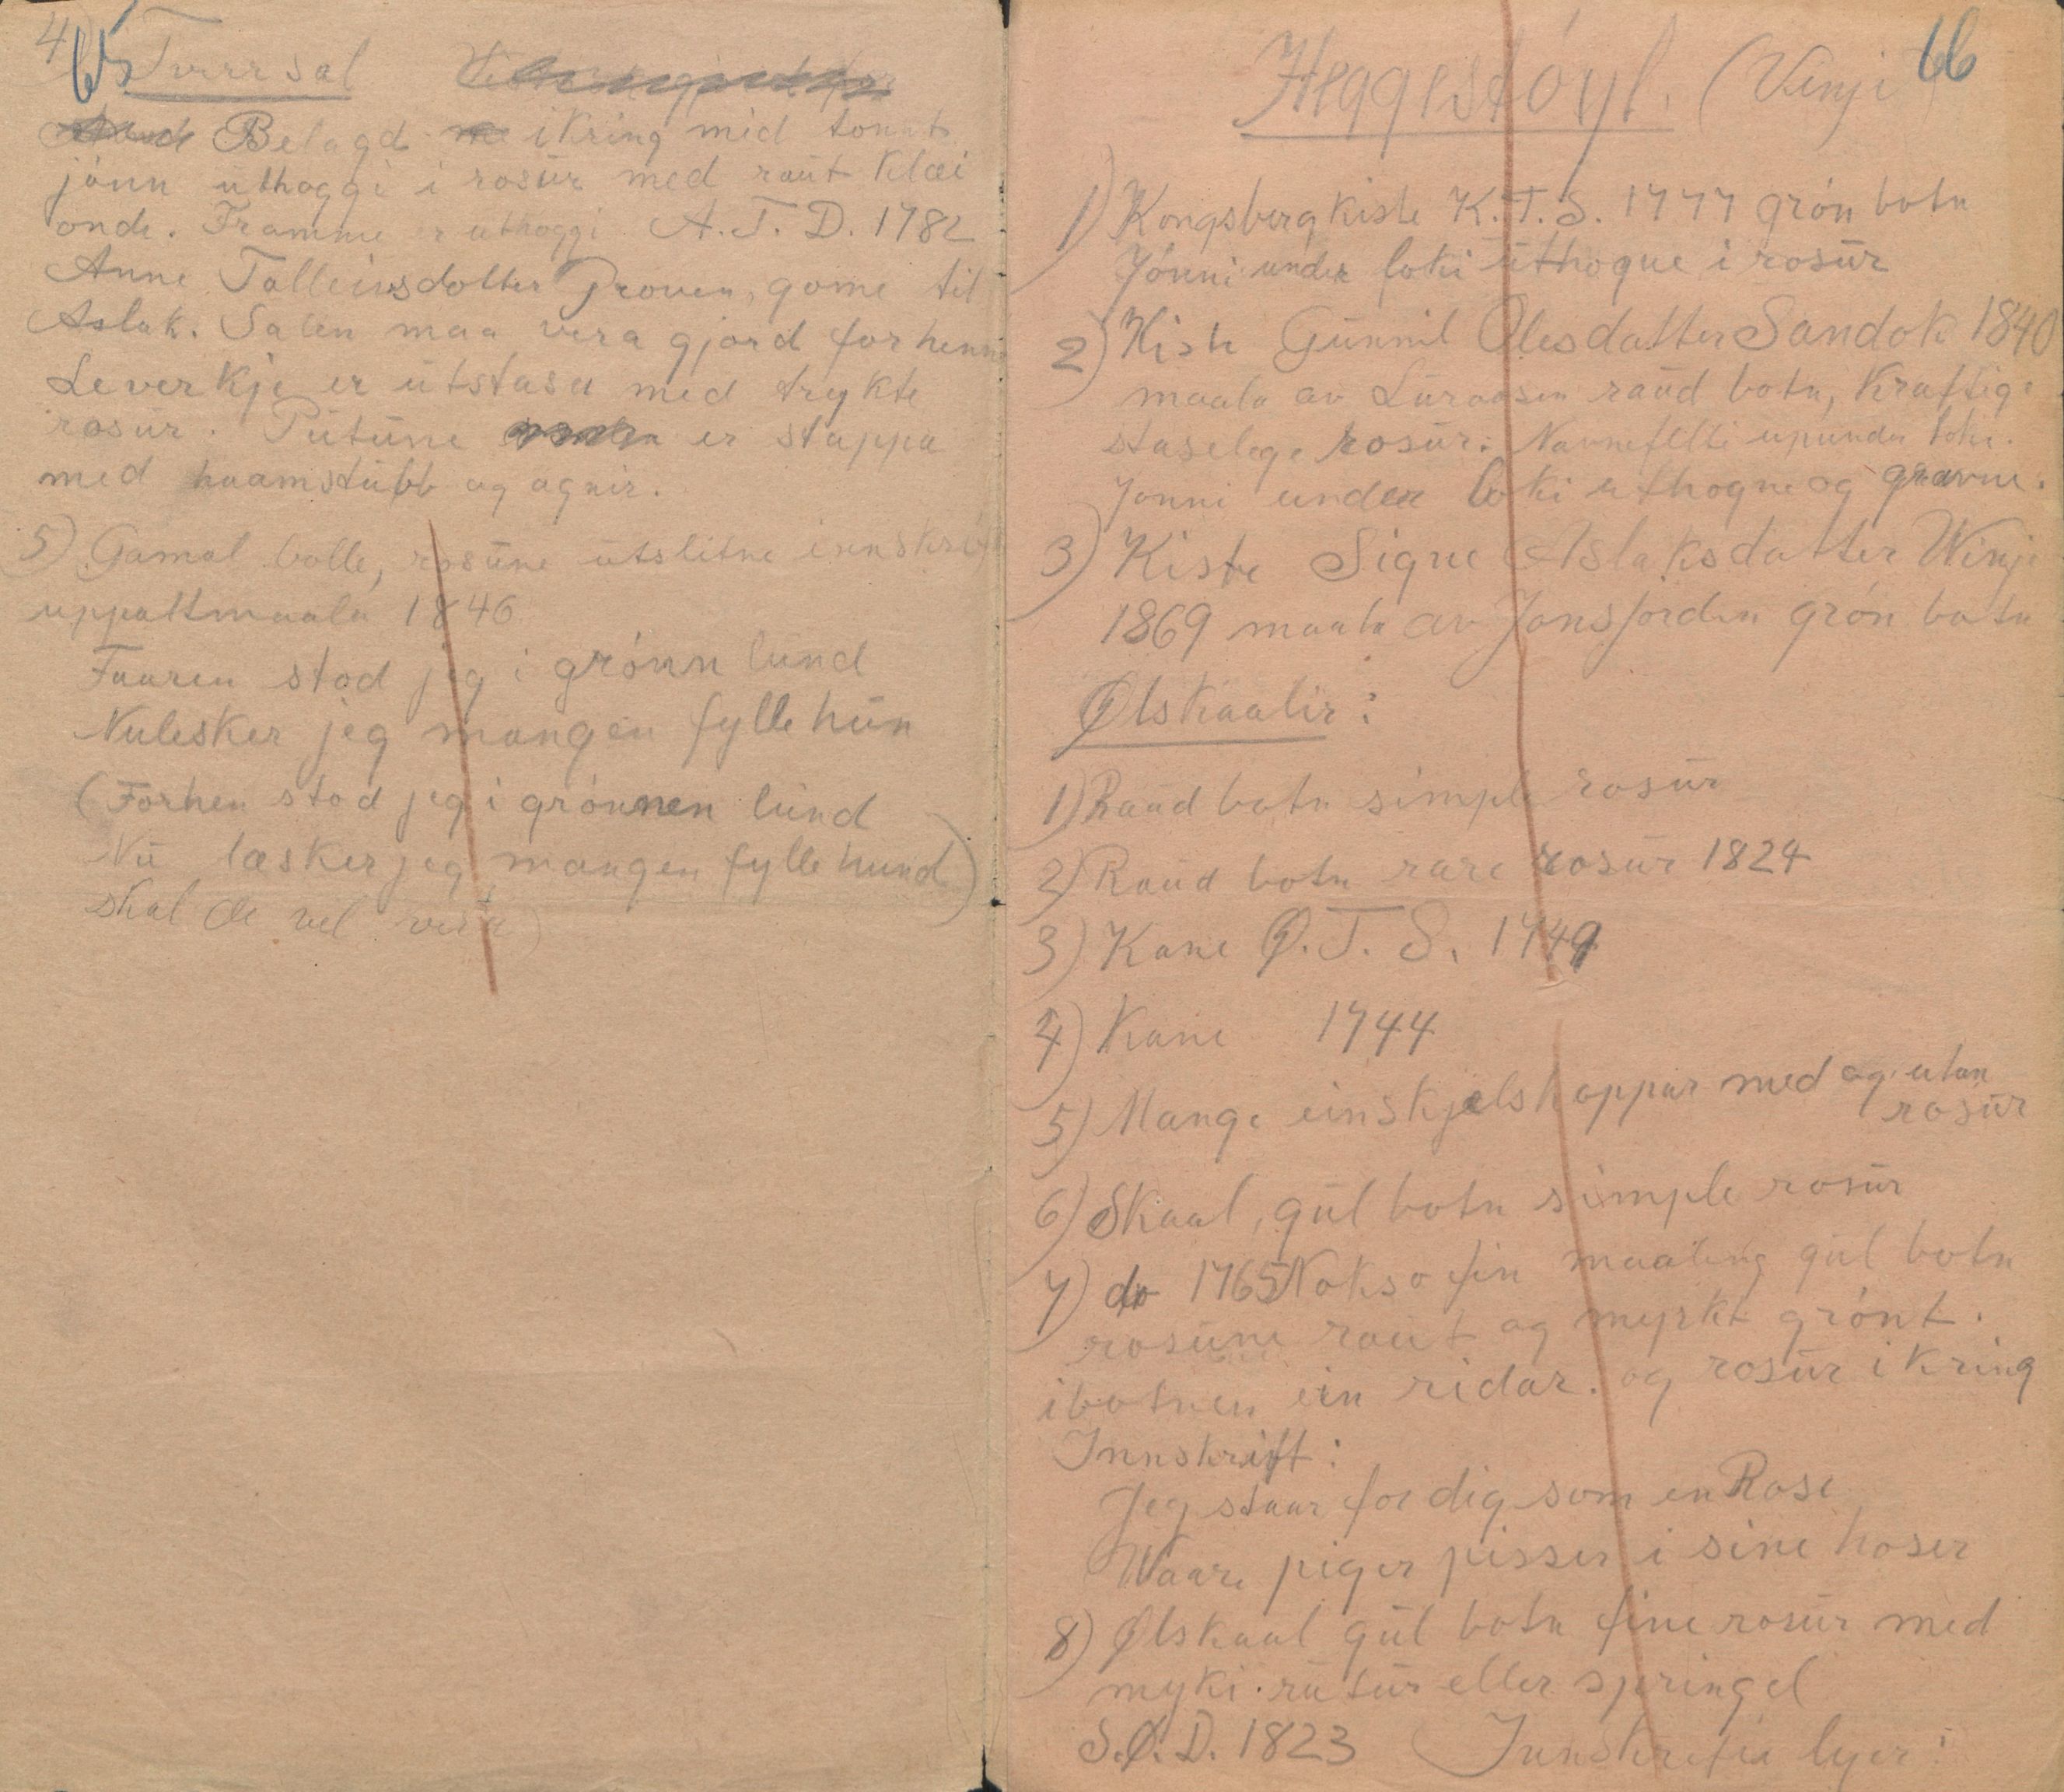 4)
65
Tverrsal
Belagd ikring med tonnt
jónn uthoggi i rosür med raüt klæi
onde. Framme er uthoggi A. T. D. 1782
Anne Talleivsdotter Proven, gome til
Aslak. Salen maa vera gjord for henne
Leverkje er ütstasa med trykte
rosür. Pütüne er stappa
med haamstübb og agnir.
5) Gamal bolle, rosüne ütslitne innskrift
uppattmaala 1846
Faaren stod jeg i grónn lünd
Nulesker jeg mangen fylle hün
(Forhen stod jeg i grónnen lünd
Nü læsker jeg mangen fylle hund)
skal de vel vera)
66
Heggestóyl. (Vinji)
1) Kongsbergkiste K. T. S. 1777 grón botn
Jónni under loki üthogne i rosür
2) Kiste Günnil Olesdatter Sandok 1840
maala av Lüraasen raüd botn, Kraftige
staselege rosür. Navnefelti upunda loke.
Jonni under loki uthogne og gravne.
3) Kiste Signe Aslaksdatter Winje
1869 maala av Jonsjorden grón botn
Ølskaalir:
1) Raüd botn simple rosür
2) Raüd botn rare rosür 1824
3) Kane Ø. T. S. 1749
4) Kane 1744
5) Mange einskjelskoppar med og utan
rosür
6) Skaal, gül botn simple rosür
7) do 1765 Nokso fin maaling gül botn
rosüne raüt og myrkt grónt.
i botnen ein ridar. og rosür ikring
Innskrift:
Jeg staar for dig som en Rose
Waare piger pisser i sine hoser
8) Ølskaal gül botn fine rosür med
myki. rütür eller springel
S. Ø. D. 1823 Innskriftir lyer: